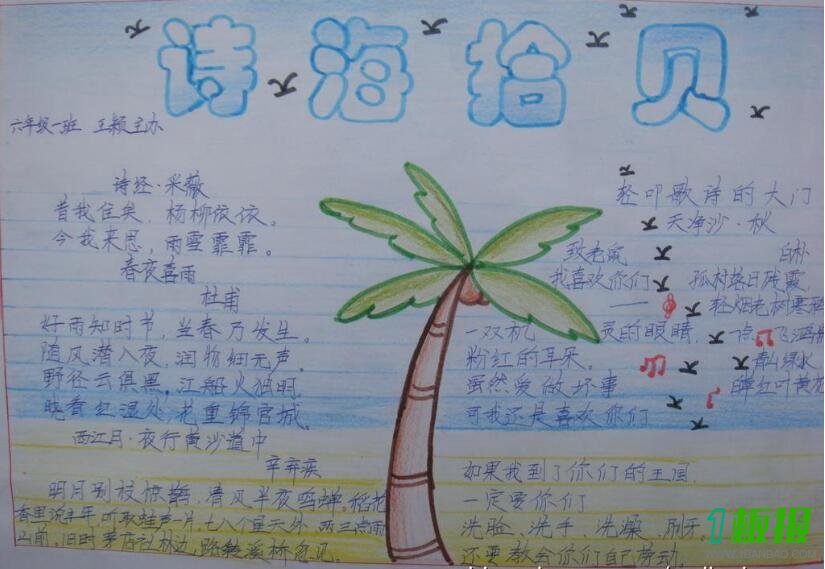 诗海拾贝
六年级一班 王颖主办
诗经·采薇
昔我往矣，杨柳依依。
今我来思，雨雪霏霏。
春夜喜雨
杜甫
好雨知时节，当春乃发生。
随风潜入夜，润物细无声。
野径云俱黑，江船火独明。
晓看红湿处，花重锦官城。
西江月·夜行黄沙道中
辛弃疾
明月别枝惊鹊，清风半夜鸣蝉。稻花
香里说丰年，听取蛙声一片。七八个星天外，两三点雨
山前。旧时茅店社林边，路转溪桥忽见。
轻叩歌诗的大门
天净沙·秋
白朴
孤村落日残霞，
轻烟老树寒鸦
一点飞鸿影
青山绿水
白草红叶黄花
致老鼠
我喜欢你们
——
一双机灵的眼睛
粉红的耳朵
虽然爱做坏事
可我还是喜欢你们
如果我到了你们的王国
一定要你们
洗脸、洗手、洗澡、刷牙
还要教会你们自己劳动，
1板报
WWW.1BANBAO.COM